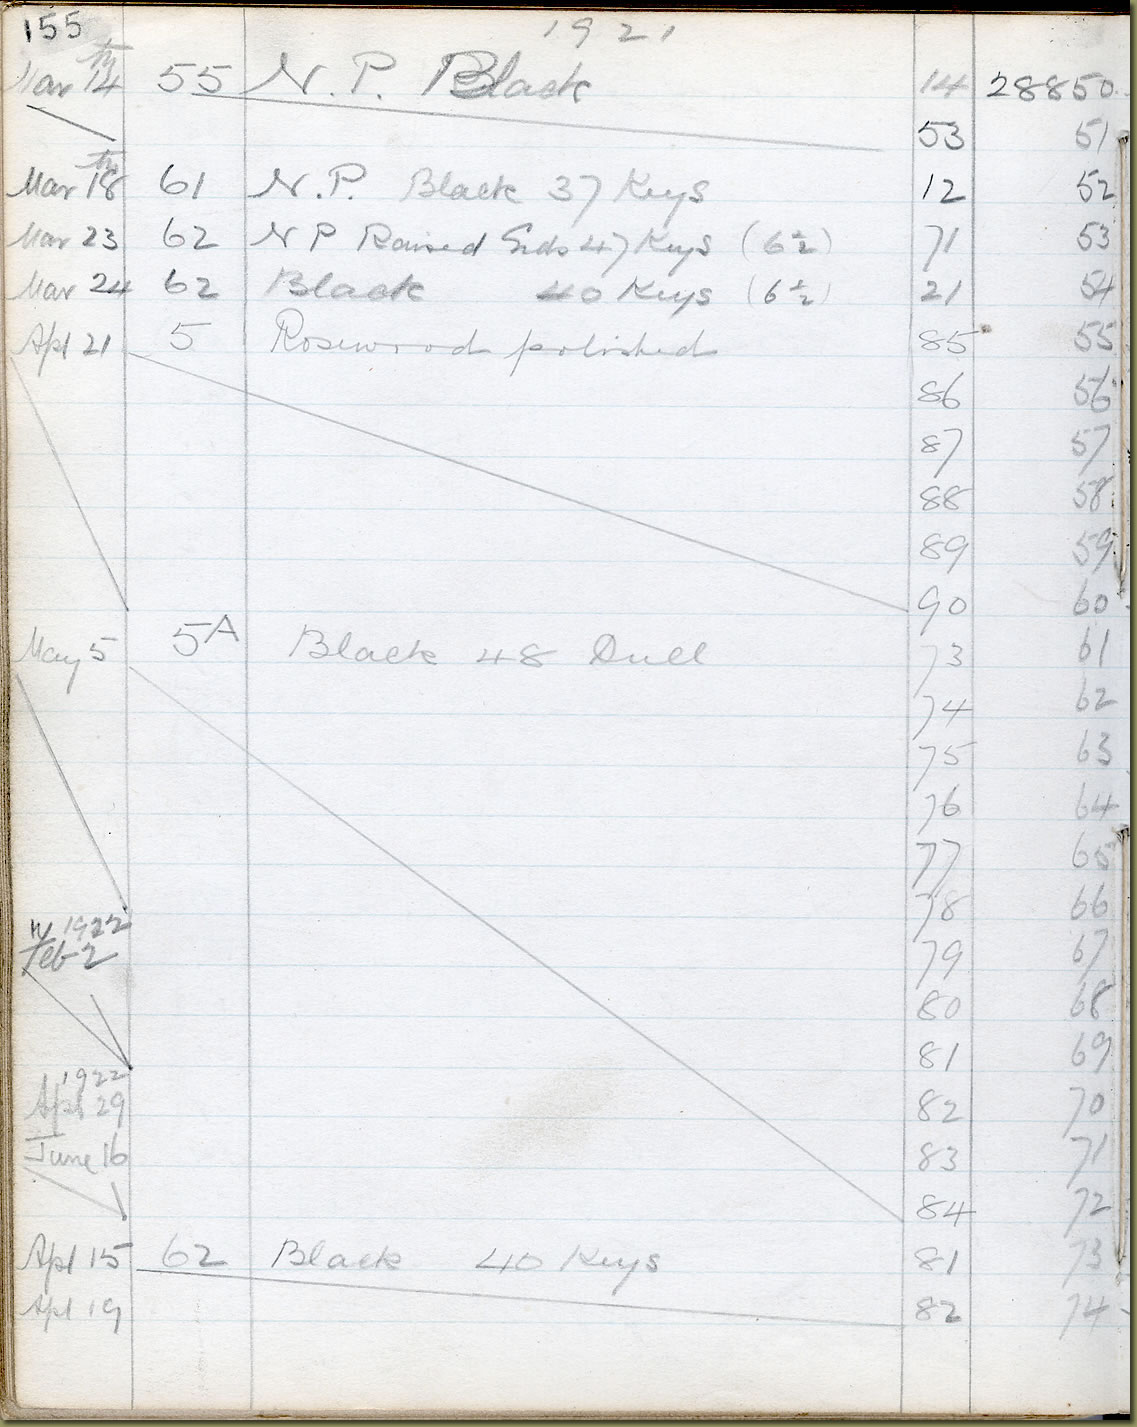 155 1921
Mar 14th 55 N.P. Black 14 28850
53 51
Mar 18th 61 N.P. Black 37 Keys 12 52
Mar 23 62 N P Raised Ends 47 Keys (6½) 71 53
Mar 24 62 Black 40 Keys (6½) 21 54
Apl 21 5 Rosewood polished 85 55
86 56
87 57
88 58
89 59
90 60
May 5 5A Black 48 Dull 73 61
74 62
75 63
76 64
77 65
78 66
1922
Feb 2 79 67
80 68
81 69
1922
Apl 29 82 70
June 16 83 71
84 72
Apl 15 62 Black 40 Keys 81 73
Apl 19 82 74